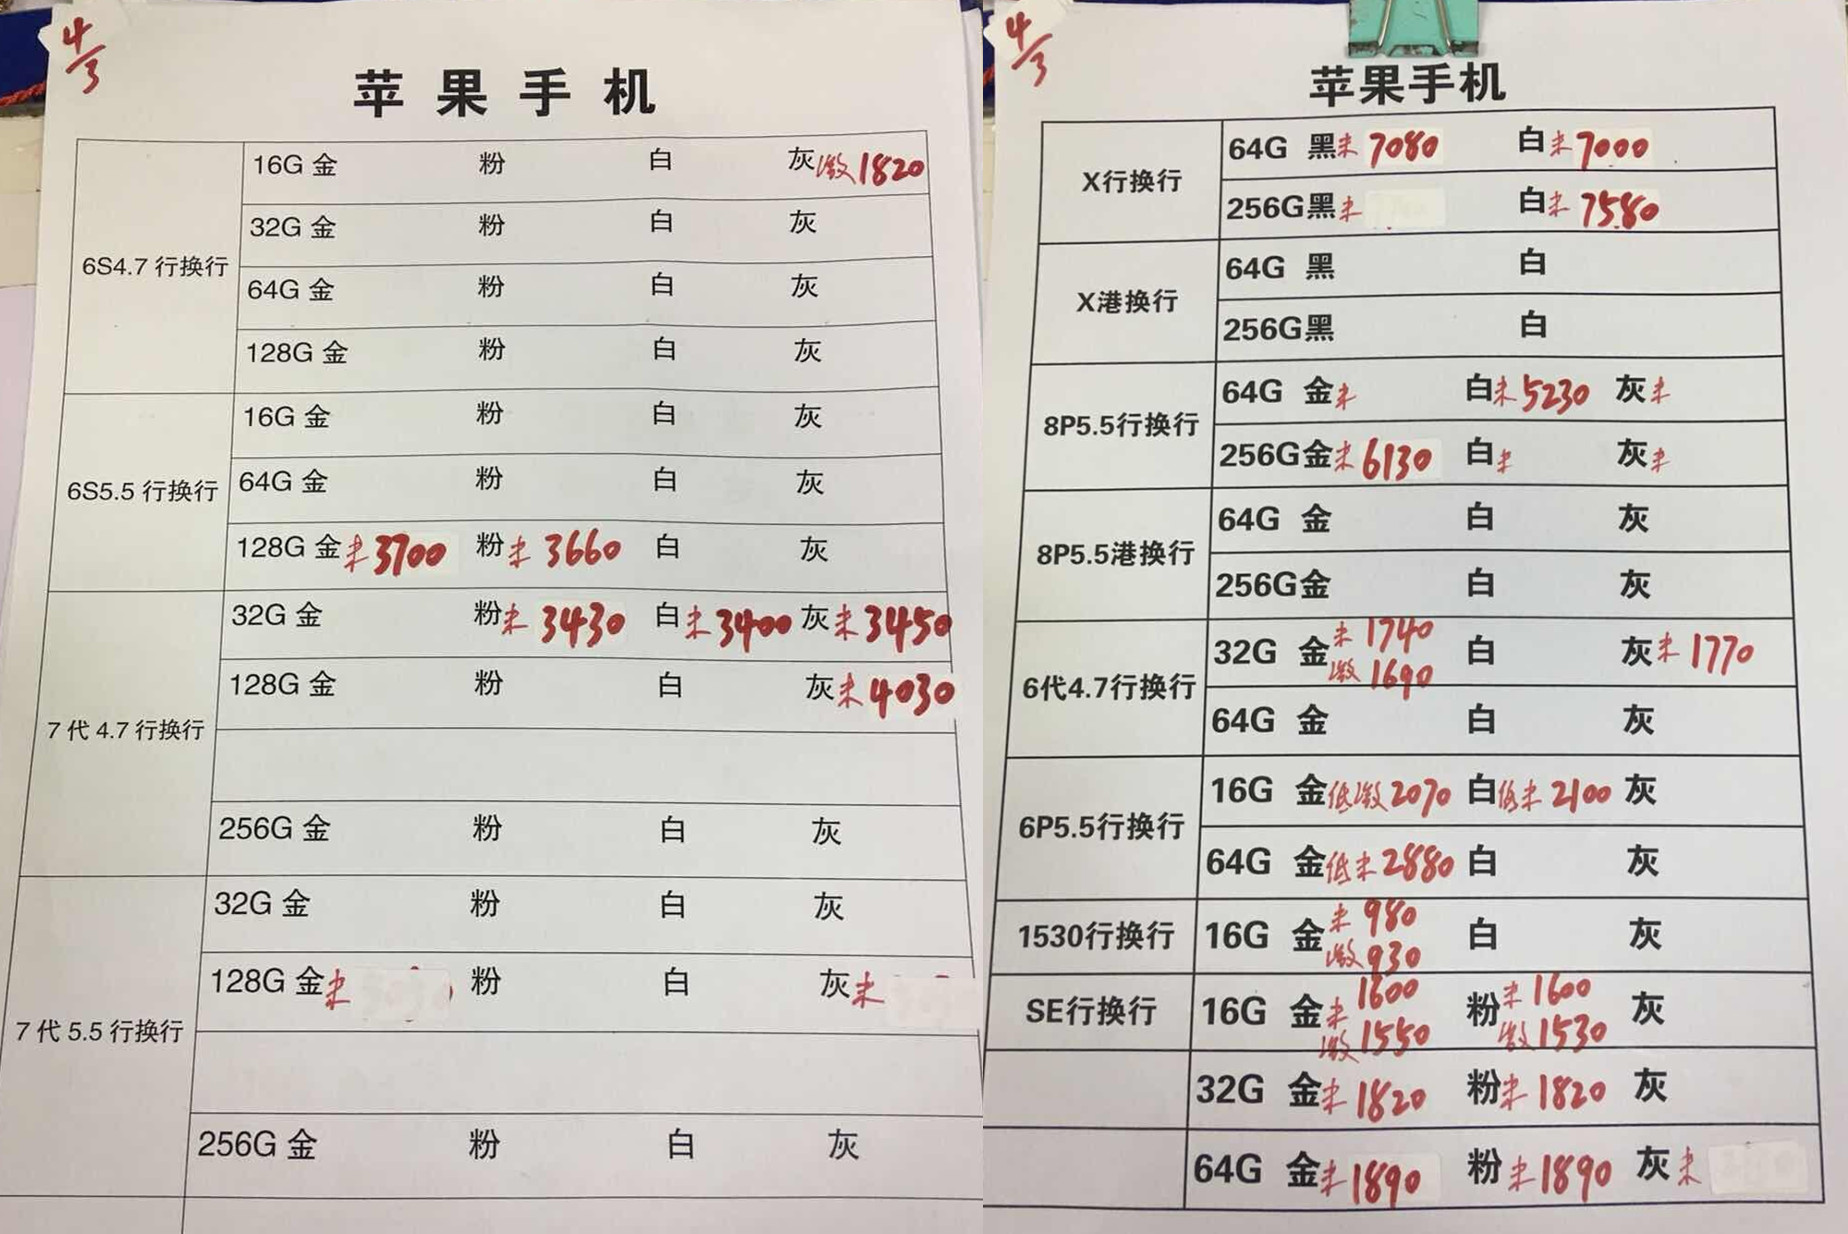 4/3
苹果手机
6S4.7 行换行
16G 金 粉 白 灰 激 1820
32G 金 粉 白 灰
64G 金 粉 白 灰
128G 金 粉 白 灰
6S5.5 行换行
16G 金 粉 白 灰
64G 金 粉 白 灰
128G 金 未 3700 粉 未 3660 白 灰
7 代 4.7 行换行
32G 金 粉 未 3430 白 未 3400 灰 未 3450
128G 金 粉 白 灰 未 4030
256G 金 粉 白 灰
7 代 5.5 行换行
32G 金 粉 白 灰
128G 金 未 粉 白 灰 未
256G 金 粉 白 灰
4/3
苹果手机
X行换行
64G 黑 未 7080 白 未 7000
256G黑 未 白 未 7580
X港换行
64G 黑 白
256G黑 白
8P5.5行换行
64G 金 未 白 未 5230 灰 未
256G金 未 6130 白 未 灰 未
8P5.5港换行
64G 金 白 灰
256G金 白 灰
6代4.7行换行
32G 金 未 1740 激 1690 白 灰 未 1770
64G 金 白 灰
6P5.5行换行
16G 金 低激 2070 白 低未 2100 灰
64G 金 低未 2880 白 灰
1530行换行
16G 金 未 980 激 930 白 灰
SE行换行
16G 金 未 1600 激 1550 粉 未 1600 激 1530 灰
32G 金 未 1820 粉 未 1820 灰
64G 金 未 1890 粉 未 1890 灰 未